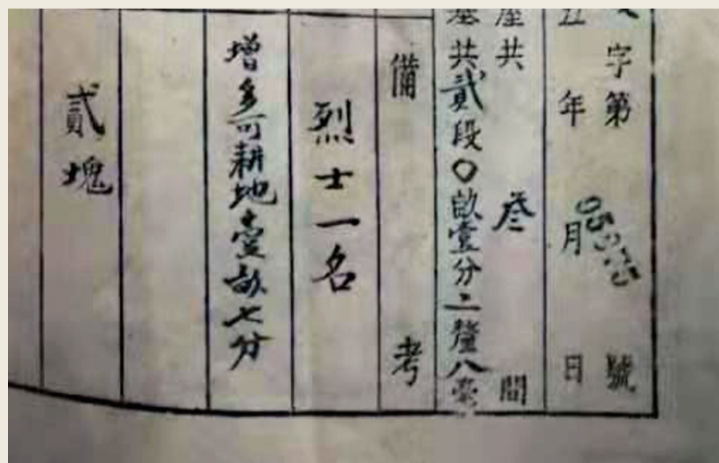 字第號
年月日
座共叁間
基共貳段〇畝壹分二釐八毫
備考
烈士一名
增多可耕地壹畝七分
貳塊